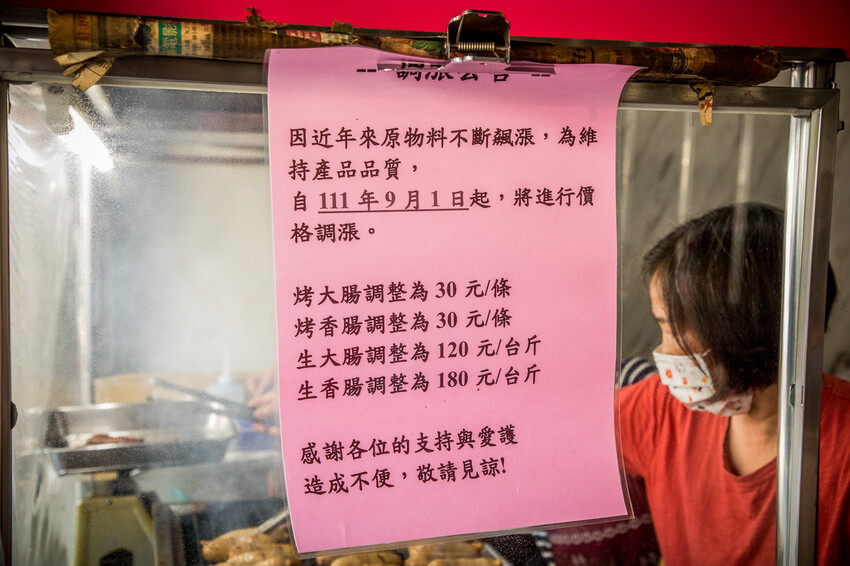 -- 調漲公告 --
因近年來原物料不斷飆漲，為維
持產品品質，
自 111 年 9 月 1 日起，將進行價
格調漲。
烤大腸調整為 30 元/條
烤香腸調整為 30 元/條
生大腸調整為 120 元/台斤
生香腸調整為 180 元/台斤
感謝各位的支持與愛護
造成不便，敬請見諒!